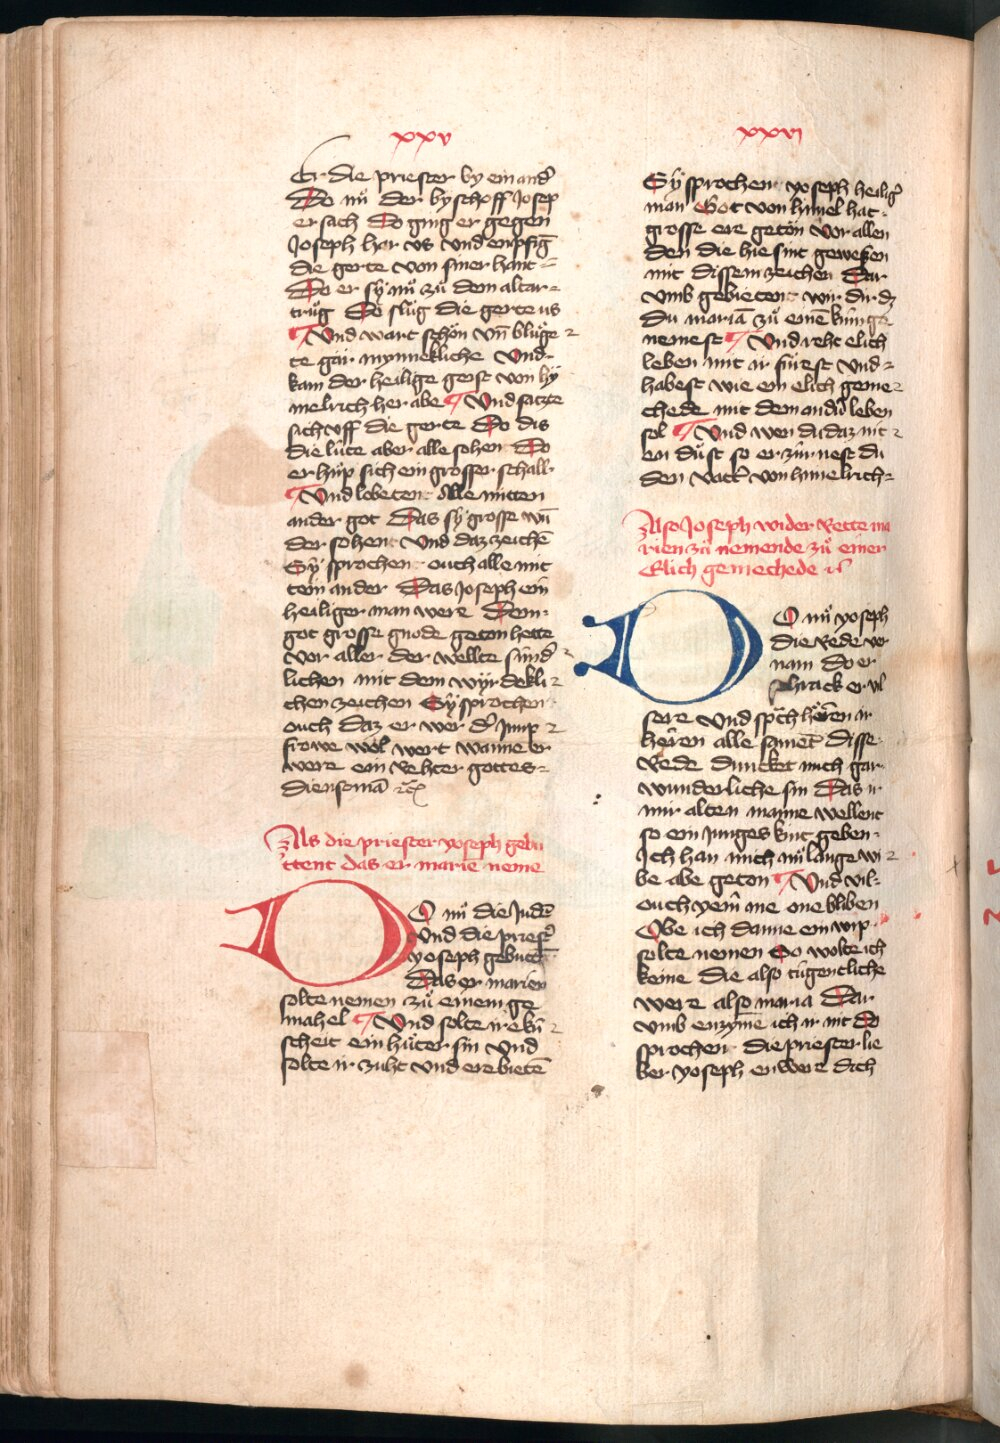 xxv
Er die priester by ein and̕
Do nů der byschoff Josep
ersach Do ging er gegen
Joseph har vs vnd enpfĩg
die gerte von siner hant
Do er sy nů zů dem altar
trůg Do slůg die gerte us
Vnd wart schön vn̄ blůge
te gar mynnekliche Vnd
kam der heilige geist von hy
melrich her abe Vnd satzte
sich vff die gerte Do dis
die lüte aber alle sohen Do
erhůp sich ein grosser schall
Vnd lobeten Alle mitten
ander got Das sy grosse wū
der sohent Vnd daz zeichē
Sy sprochen ouch alle mit
tein ander Das Joseph ein
heiliger man were Dem
got grosse gnode geton hette
vor aller der wellte sünd̕
lichen mit dem wyrdekli
chen zeichen Sy sprochen
ouch daz er wer d̕ Jimp
frowe wol wert wanne er
were ein rehter gottes
dienstman ⁊c̄
Als die priester yoseph gebu
ttent das er marie neme
DO nů die Judē
vnd die priest̕
yoseph gebutē
Das er marien
solte nemen zů einem ge
mahel Vnd solte ir kü
scheit ein hüter sin Vnd
solte ir zuht vnd ere bietē
xxvi
Sy sprochen yoseph heilig̕
man Got von himel hat
grosse ere geton vor allen
den die hie sint gewesen
mit dissem zeichen Dar
vmb gebieten wir dir dz
du mariā zů einē künge
nemest Vnd reht elich
leben mit ir fürest Vnd
habest wie ein elich geme
chede mit dem and̕ leben
sol Vnd wen du daz nit
en důst so erzürnest du
den vatt̕ von himelrich
Also Joseph wider rette ma
rien zů nemende zů einer
Elich gemechede ⁊c̄
DO nů yoseph
die rede ver
nam do er
schrack er vil
sere Vnd sp̄ch hören ir
herren alle samet disse
rede duncket mich gar
wunderliche sin Das ir
mir alten manne wellent
so ein junges kint geben
Ich han mich nů lange wi
be abe geton Vnd wil
ouch yem̄ me one bliben
Obe ich danne ein wip
solte nemen So wolte ich
keine die also tügentliche
were also maria Dar
vmb enzyme ich ir nit Do
sprochen die priester lie
ber yoseph en were dich